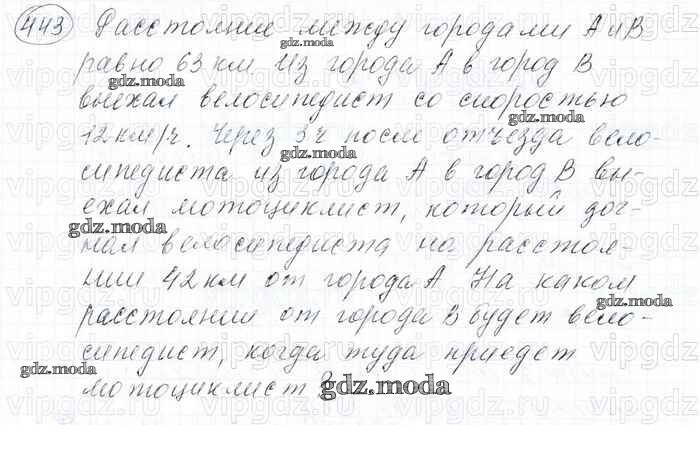 443 Расстояние между городами А и В
равно 63 км. Из города А в город В
выехал велосипедист со скоростью
12 км/ч. Через 3 ч после отъезда вело-
сипедиста из города А в город В вы-
ехал мотоциклист, который дог-
нал велосипедиста на расстоя-
нии 42 км от города А. На каком
расстоянии от города В будет вело-
сипедист, когда туда приедет
мотоциклист?
gdz.moda
gdz.moda
gdz.moda
gdz.moda
gdz.moda
gdz.moda
gdz.moda
vipgdz